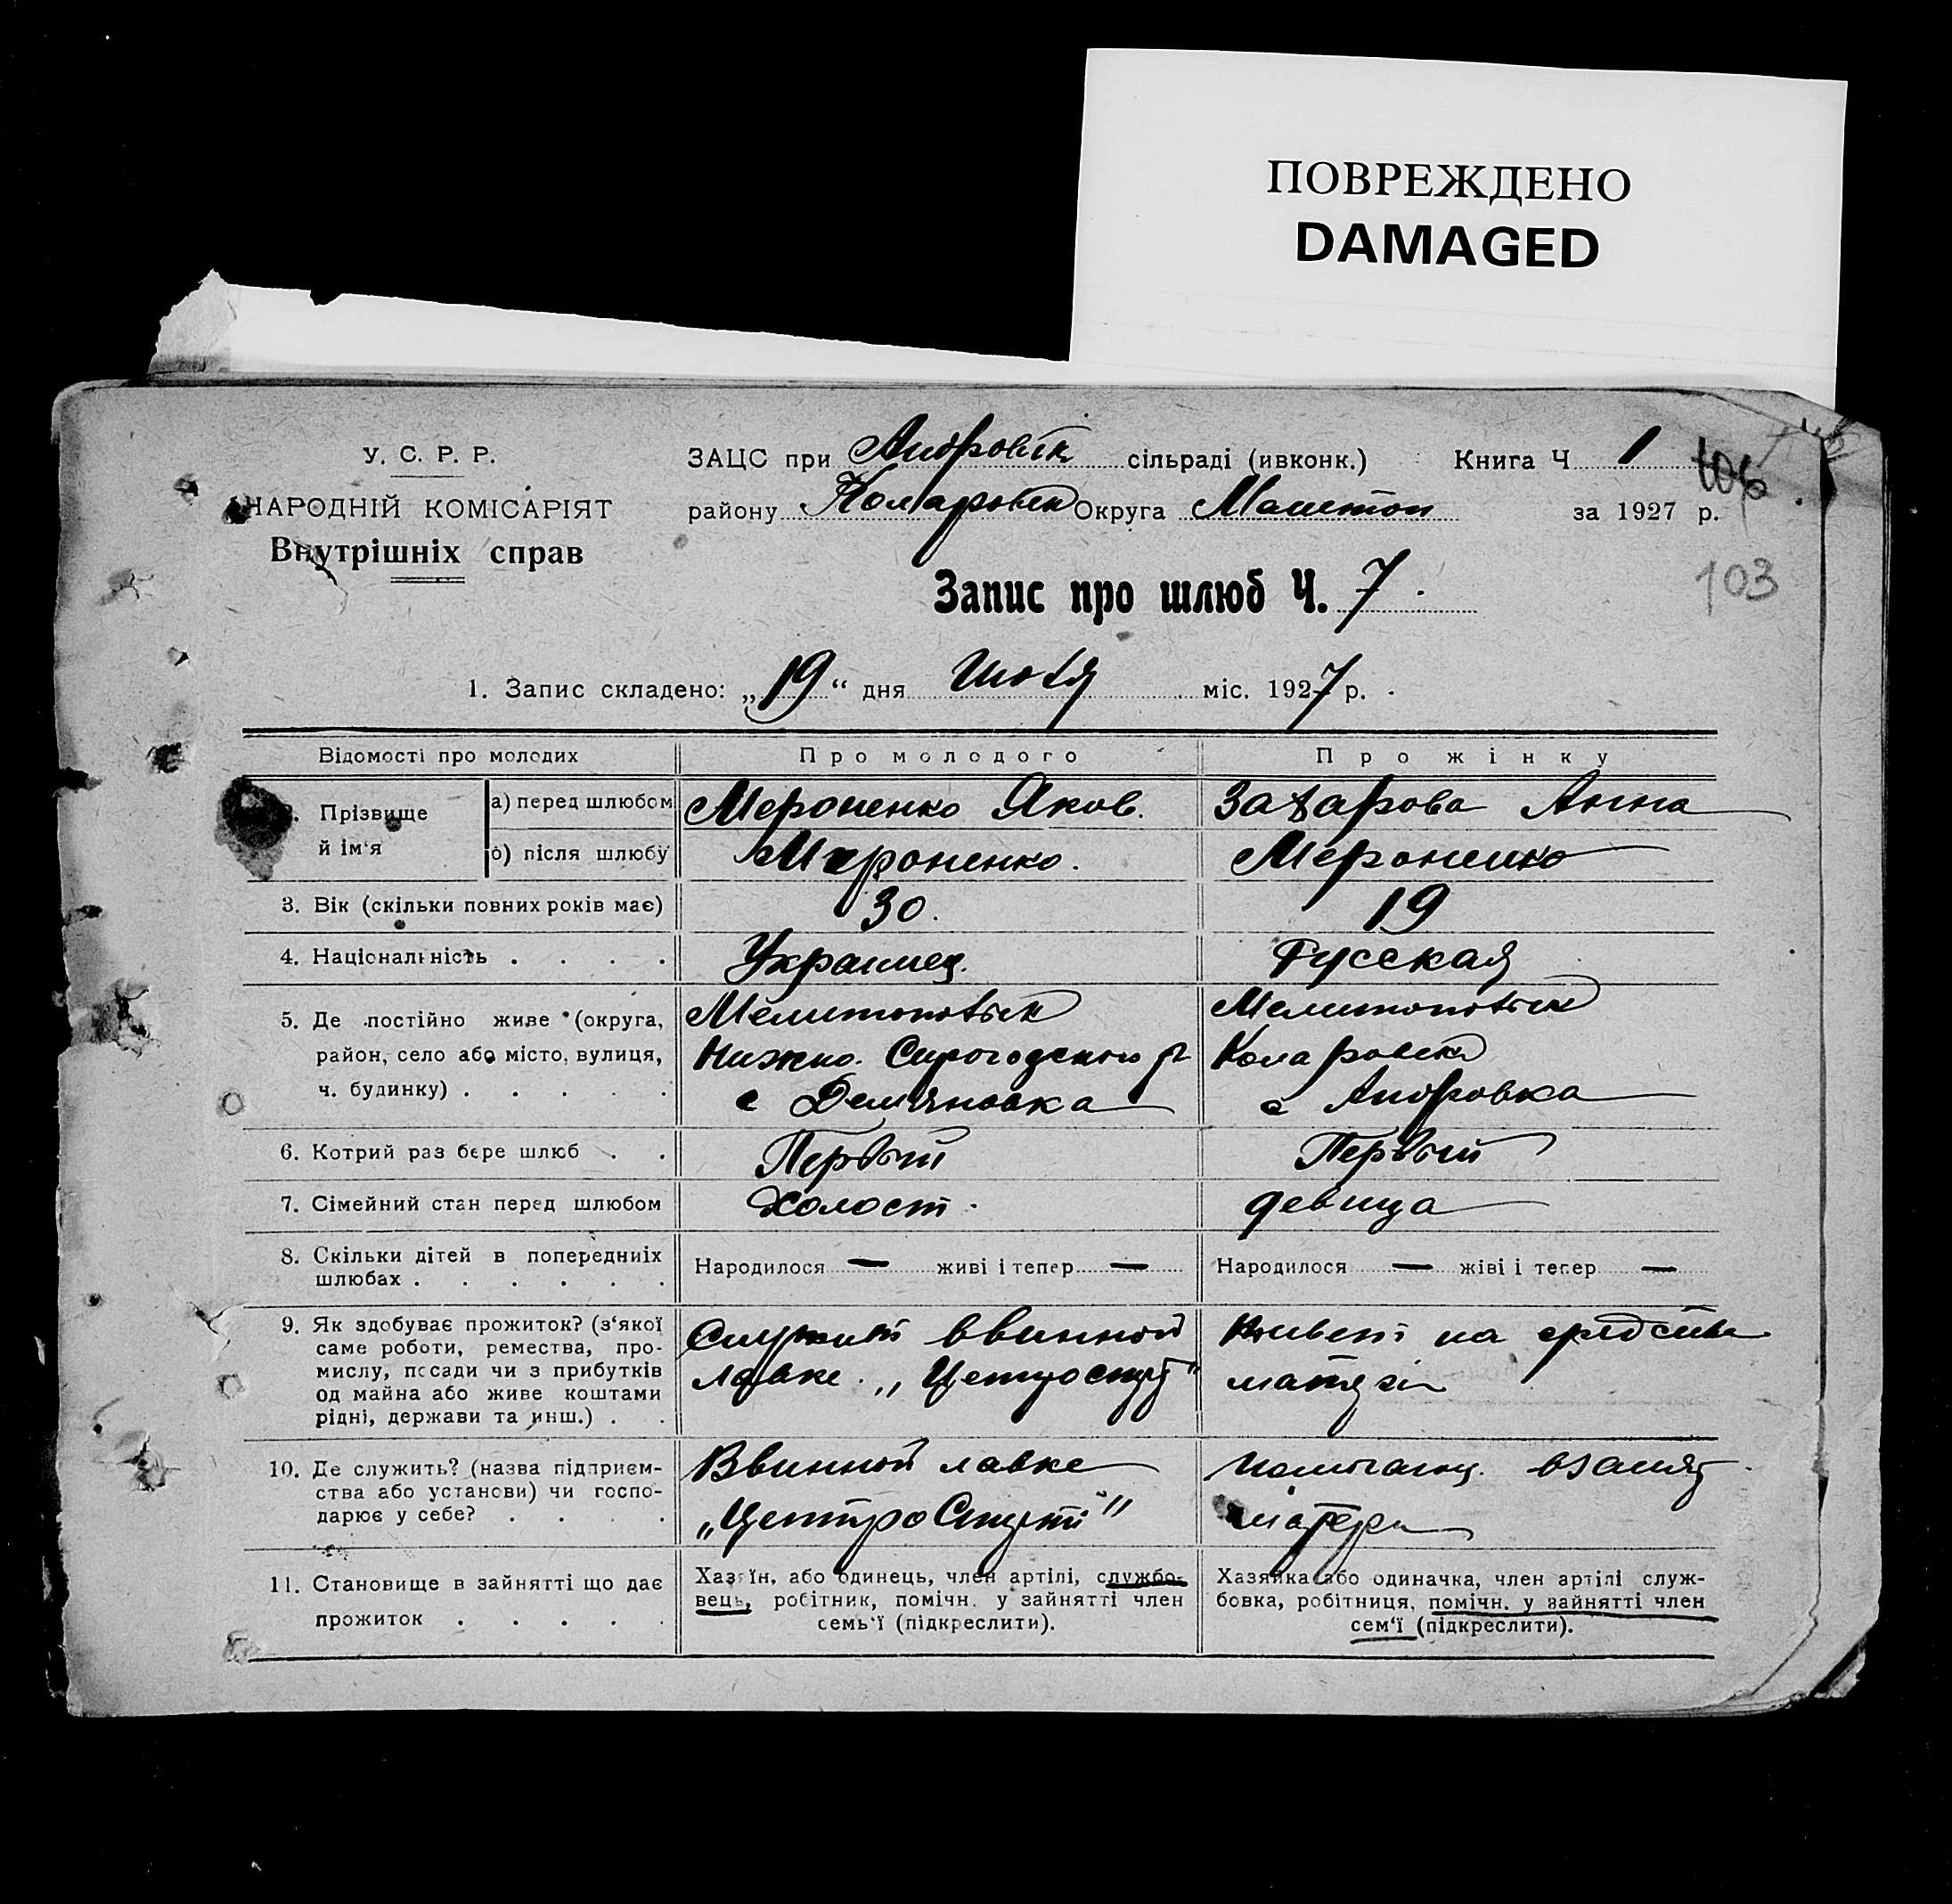 ПОВРЕЖДЕНО
DAMAGED
У. С. Р. Р.
НАРОДНІЙ КОМІСАРІЯТ
Внутрішніх справ
ЗАЦС при Андровск сільраді (ивконк.) Книга Ч 1 106
району Коларовск Округа Мелитоп за 1927 р.
103
Запис про шлюб Ч. 7.
1. Запис складено: „19“ дня Июля міс. 1927 р.
Відомості про молодих Про молодого Про жінку
Прізвище й ім‘я
а) перед шлюбом Мероненко Яков. Захарова Анна
б) після шлюбу Мероненко. Мероненко
3. Вік (скільки повних років має) 30. 19
4. Національність . . . . Украинец. Русская
5. Де постійно живе (округа, район, село або місто, вулиця, ч. будинку) . . . . .
Мелитопольск
Нижно. Сирогозского р
с Демяновка
Мелитопольск
Коларовск
с Андровка
6. Котрий раз бере шлюб . . Первый Первый
7. Сімейний стан перед шлюбом Холост. девица
8. Скільки дітей в попередниіх шлюбах . . . . . .
Народилося — живі і тепер —
Народилося — жіві і тепер —
9. Як здобуває прожиток? (з‘якої
саме роботи, ремества, про-
мислу, посади чи з прибутків
од майна або живе коштами
рідні, держави та инш.) . .
Служит ввинной
лавке „Центроспирт"
Живет на средства
матери
10. Де служить? (назва підприєм-
ства або установи) чи госпо-
дарює у себе? . . . .
Ввинной лавке
„ЦентроСпирт"
матери
11. Становище в зайнятті що дає
прожиток . . . . .
Хазяїн, або одинець, член артілі, службо-
вець, робітник, помічн. у зайнятті член
семь‘ї (підкреслити).
Хазяйка або одиначка, член артілі служ-
бовка, робітниця, помічн. у зайнятті член
сем‘ї (підкреслити).